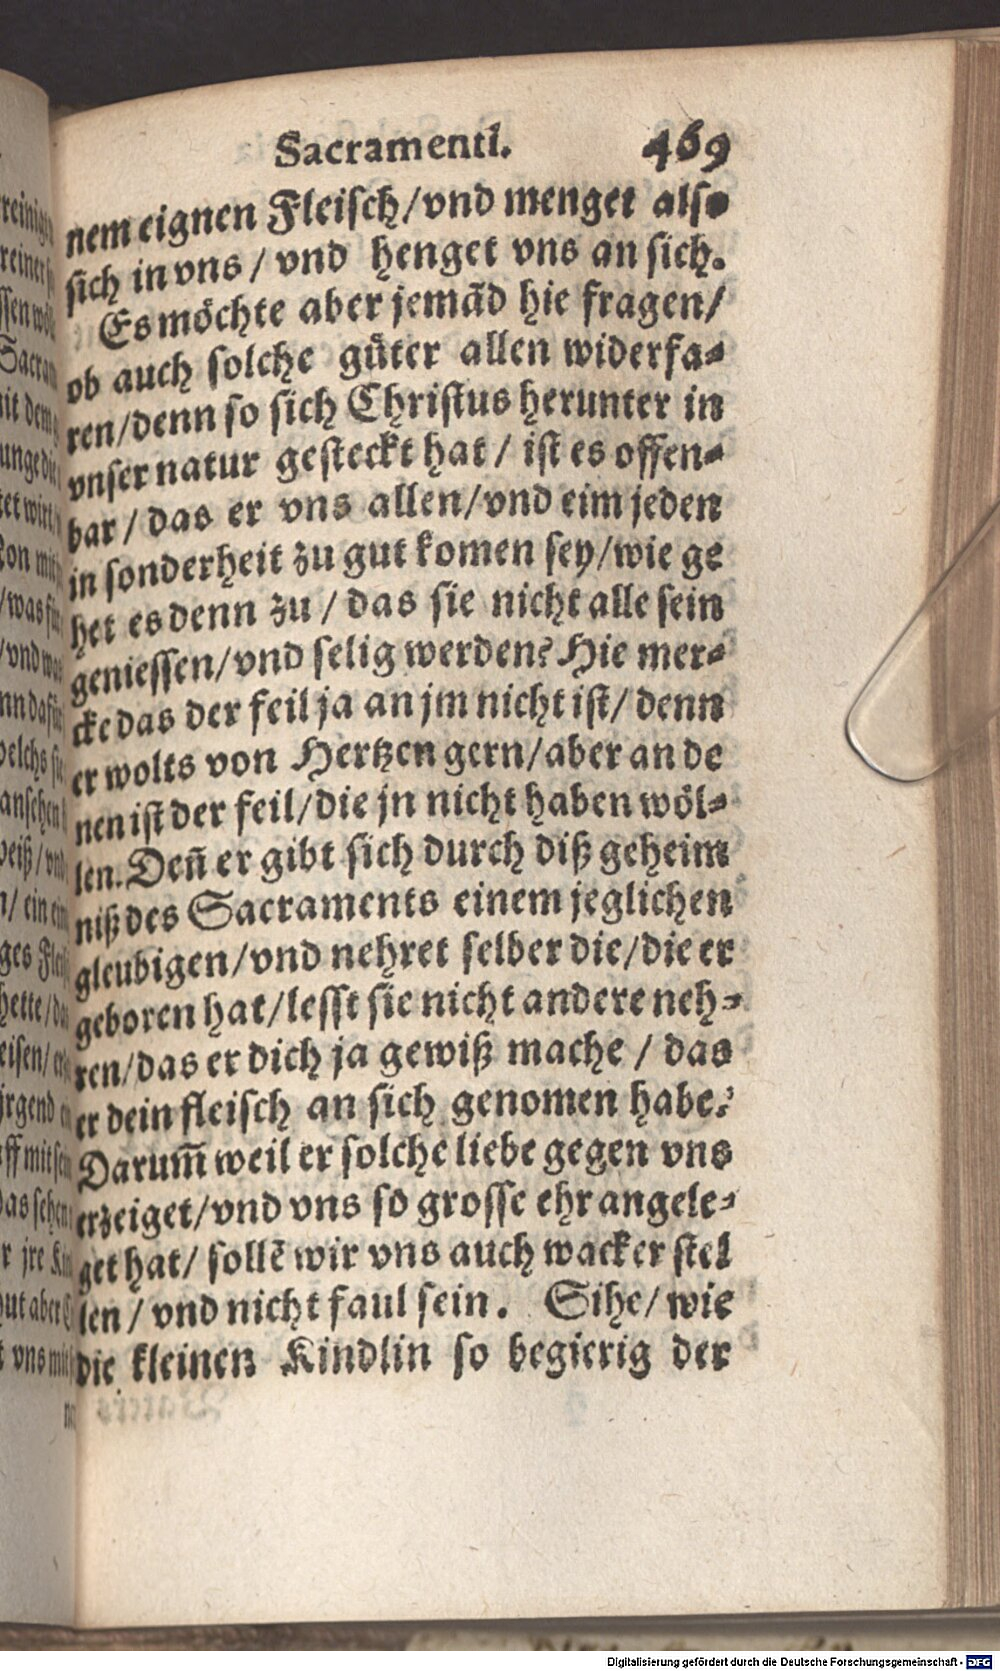 Sacramenti. 469
nem eignen Fleisch/vnd menget also
sich in vns / vnd henget vns an sich.
Es möchte aber jemād hie fragen/
ob auch solche güter allen widerfa-
ren/denn so sich Christus herunter in
vnser natur gesteckt hat / ist es offen-
bar / das er vns allen/vnd eim jeden
in sonderheit zu gut komen sey/wie ge
het es denn zu / das sie nicht alle sein
geniessen/vnd selig werden? Hie mer-
cke das der feil ja an jm nicht ist/ denn
er wolts von Hertzen gern/aber an de
nen ist der feil/die jn nicht haben wöl-
len. Deñ er gibt sich durch diß geheim
niß des Sacraments einem jeglichen
gleubigen/vnd nehret selber die/die er
geboren hat/lesst sie nicht andere neh-
ren/das er dich ja gewiß mache / das
er dein fleisch an sich genomen habe.
Darum̄ weil er solche liebe gegen vns
erzeiget/vnd vns so grosse ehr angele-
get hat/ sollē wir vns auch wacker stel
len / vnd nicht faul sein. Sihe/ wie
die kleinen Kindlin so begierig der
Digitalisierung gefördert durch die Deutsche Forschungsgemeinschaft - DFG